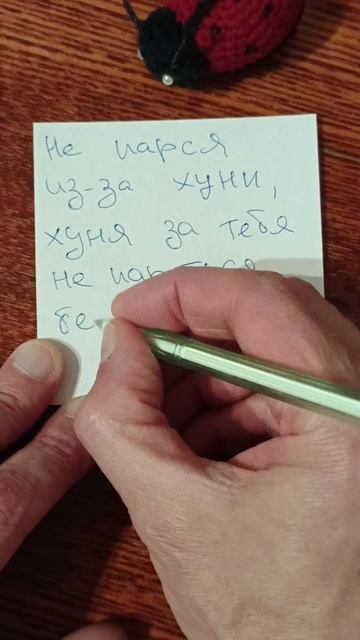 Не парся
из-за хуни,
хуня за тебя
не
бе